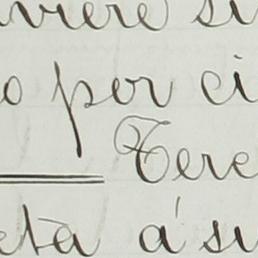 viere si
o por ci
Tere
eta á su